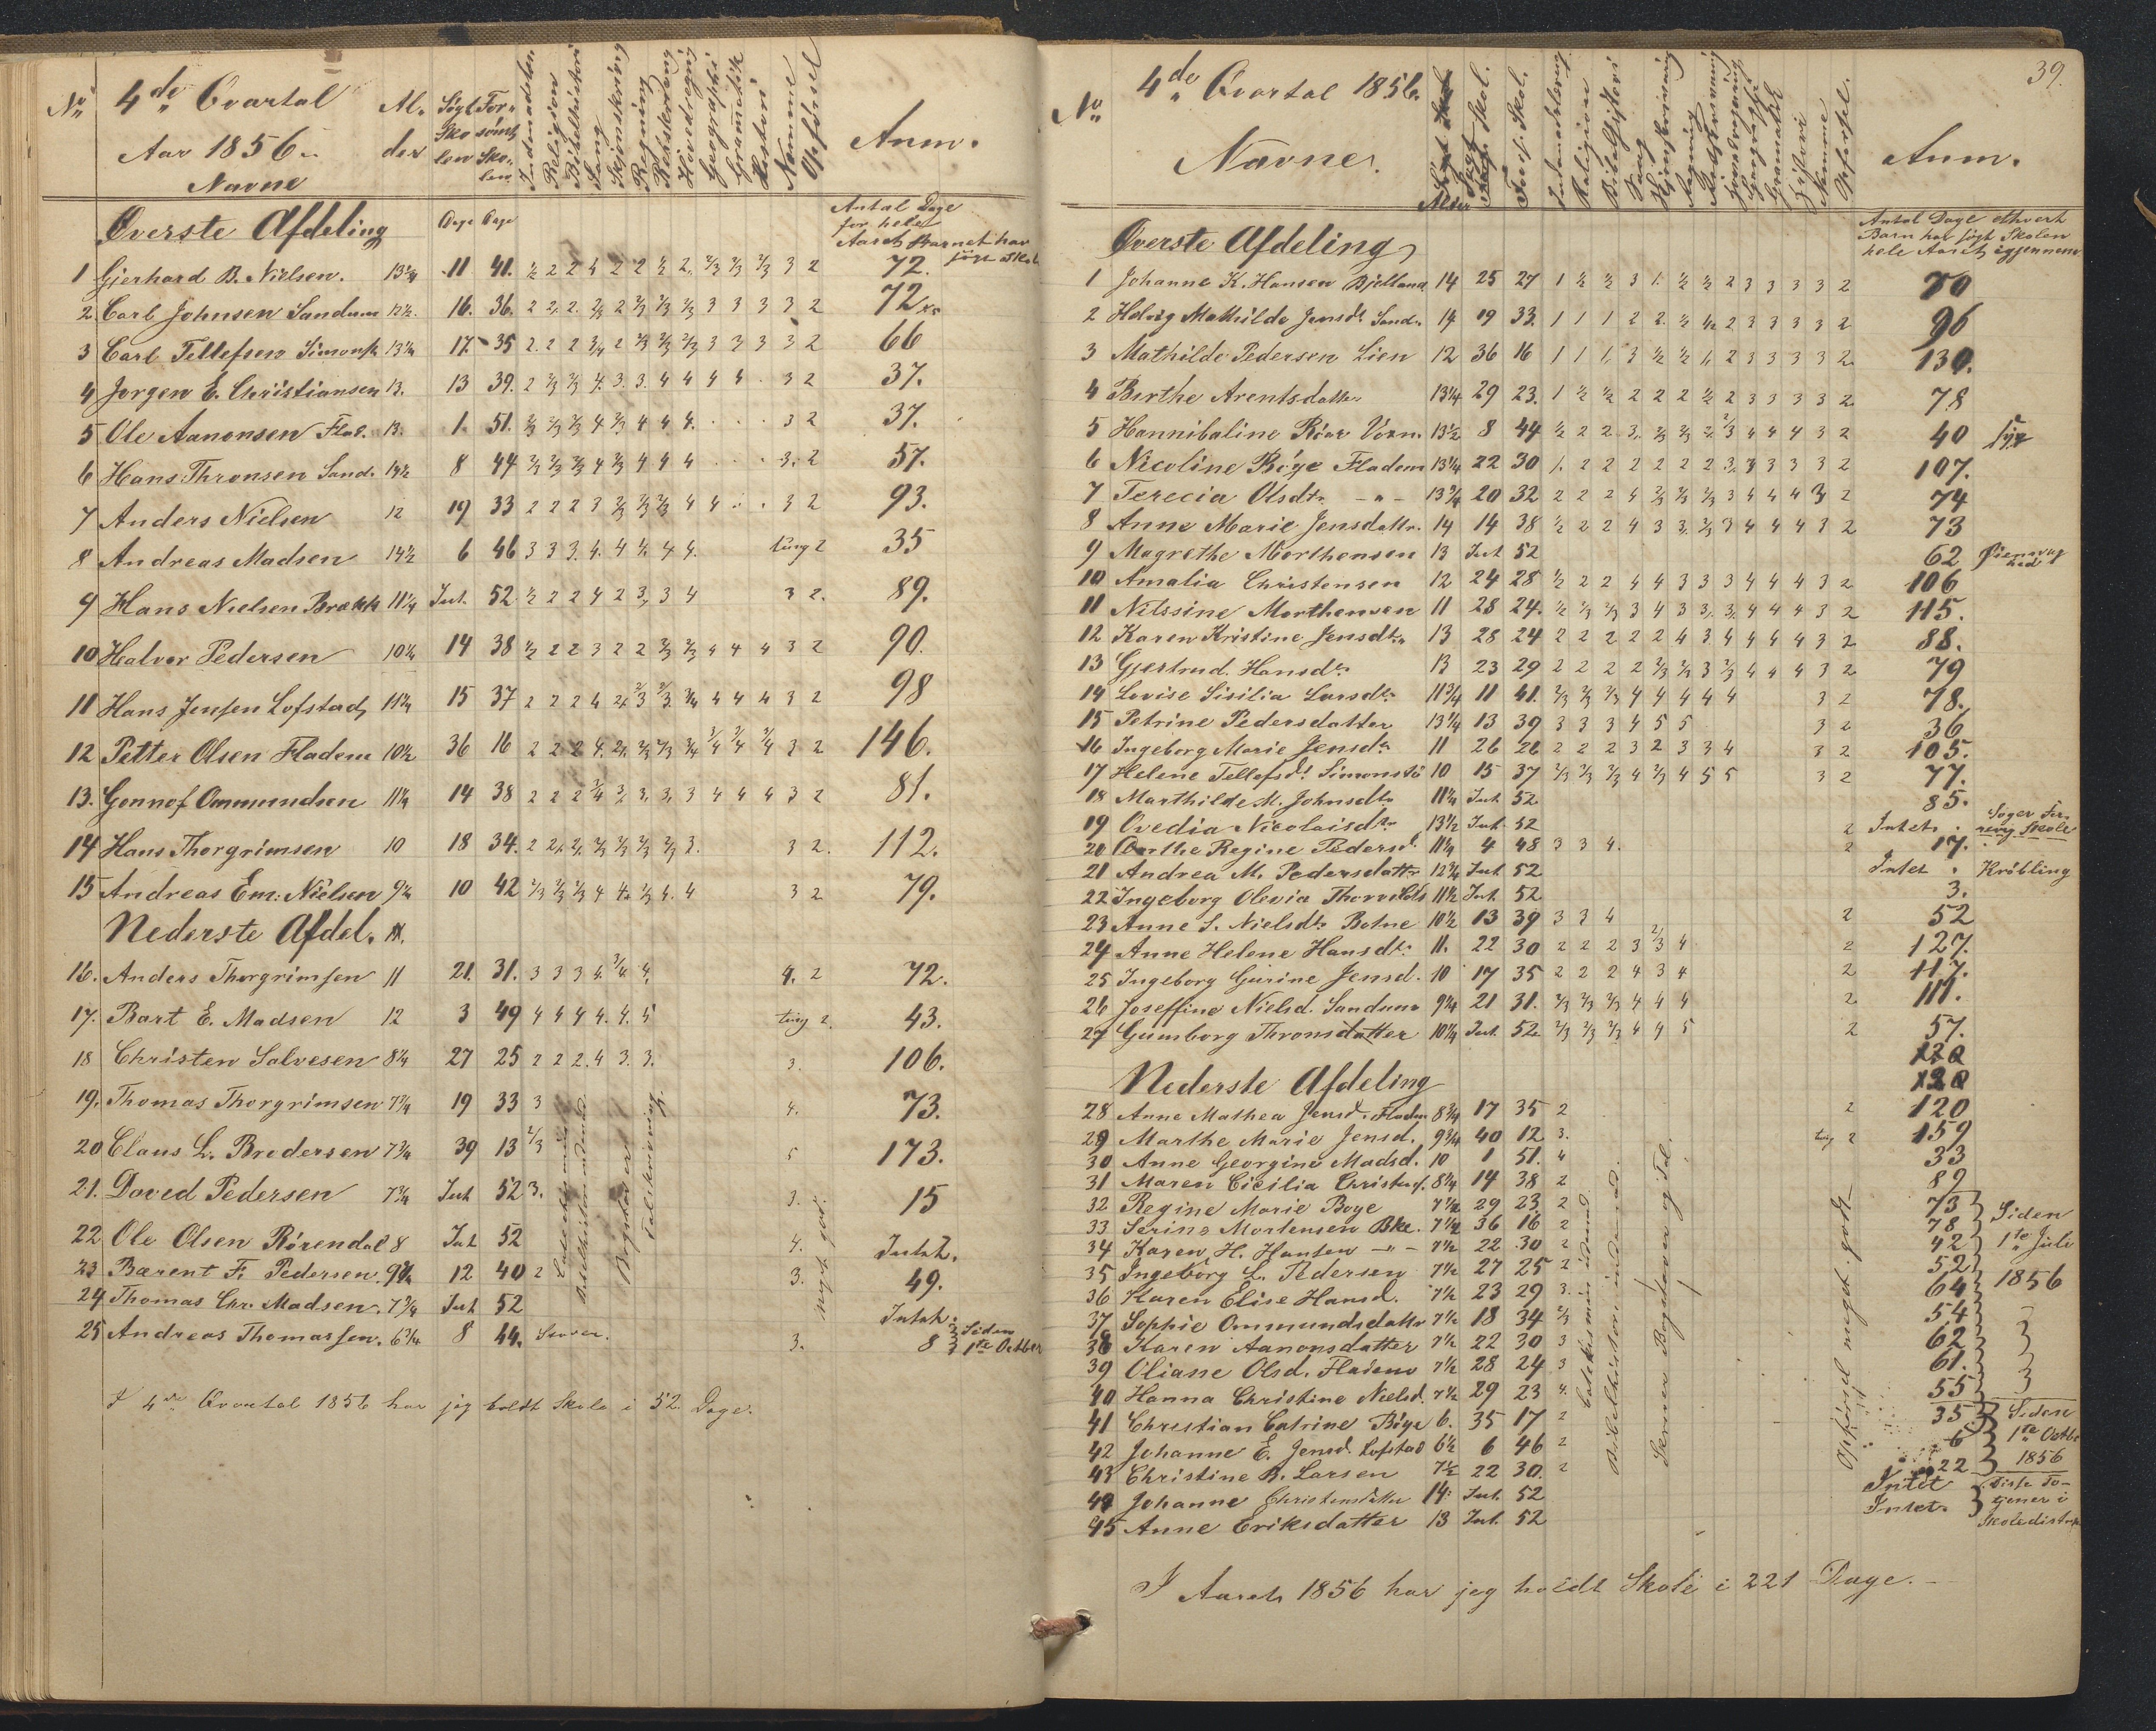 No 4de Qvartal
Aar 1856
Navne
Al-
der
Søgt
Sko
len
For-
sømt
Sko-
len
Indenadslæs.
Religion
Bibelhistori
Sang
Skjønskrivng
Regning
Retskrivng
Hovedregng
Geographi
Gramatik
Histori
Nemme
Opførsel
Anm.
Øverste Afdeling Dage Dage
Antal Dage
for hele
Aaret Barnet har
søgt Skol
1 Gjerhard B. Nielsen. 13¼ 11 41. ½ 2 2 4 2 2 ½ 2. 2/3 2/3 2/3 3 2 72.
2. Carl Johnsen Sandum 12½. 16. 36. 2 2. 2. 2/3 2 2/3 2/3 2/3 3 3 3 3 2 72
3 Carl Tellefsen Simonst 13¼ 17. 35 2. 2 2 3/4 2 2/3 2/3 2/3 3 3 3 3 2 66
4 Jørgen E. Christiansen 13. 13 39. 2 2/3 2/3 4. 3. 3. 4 4 4 4 . 3 2 37.
5 Ole Aanonsen Flad. 13. 1. 51. 2/3 2/3 2/3 4 2/3 4 4 4. . . . 3 2 37.
6 Hans Thronsen Sand. 14½ 8 44 2/3 2/3 2/3 4 2/3 4 4 4 . . . 3. 2 57.
7 Anders Nielsen 12 19 33 2 2 2 3 2/3 2/3 2/3 4 4 . . 3 2 93.
8 Andreas Madsen 14½ 6 46 3 3 3. 4. 4 4. 4 4. tung 2 35
9 Hans Nielsen Brækk 11¼ Int. 52 ½ 2 2 4 2 3. 3 4 3 2. 89.
10 Halvor Pedersen 10¼ 14 38 ½ 2 2 3 2 2 2/3 2/3 4 4 4 3 2 90.
11 Hans Jensen Lofstad 11¼ 15 37 2 2 2 4 2. 2/3 2/3 3/4 4 4 4 3 2 98
12 Petter Olsen Fladem 10½ 36 16 2 2 2 4. 2. 2/3 2/3 3/4 3/4 3/4 3/4 3 2 146.
13. Gonnof Ommundsen 11¼ 14 38 2 2 2 3/4 3. 3. 3. 3 4 4 4 3 2 81.
14 Hans Thorgrimsen 10 18 34. 2 2. 2. 2/3 2/3 2/3 2/3 3. 3 2. 112.
15 Andreas Em: Nielsen 9¼ 10 42 2/3 2/3 2/3 4 4. 2/3 4. 4 3 2 79.
Nederste Afdel.
16. Anders Thorgrimsen 11 21. 31. 3 3 3 4. 3/4 4. 4. 2 72.
17. Bart E. Madsen 12 3 49 4 4 4 4. 4. 5 tung 2. 43.
18 Christen Salvesen 8¼ 27 25 2 2 2. 4 3. 3. 3. 106.
19. Thomas Thorgrimsen 7¾ 19 33 3 4. 73.
20 Claus L. Brodersen 7¾ 39 13 2/3 5 173.
21. Doved Pedersen 7¾ Int 52 3. 3. 15
22 Ole Olsen Rørendal 8 Int 52 4. Intet.
23 Bærent F. Pedersen 9¼ 12 40 2 3. 49.
24 Thomas Chr. Madsen. 7¾ Int 52 Intet.
25 Andreas Thomassen. 6¾ 8 44. Staver. 3. 8 Siden
1te Octber
Bibelhistori
Bogstaver
Talskrivning.
meget god.
I 4de Qvartal 1856 har jeg holdt Skole i 52 Dage.
39.
No 4de Qvartal 1856.
Navne.
Alder
Søgt Skol.
Fors. Skol.
Indenadslæsng
Religion
Bibelhistori
Sang
Skjønskrivning
Regning
Retskrivning
Hovedregning
Geografi
Gramatik
Histori
Nemme
Opførsel.
Anm.
Øverste Afdeling
Antal Dage ethvert
Barn har søgt Skolen
hele Aaret igjennem
1 Johanne K. Hansen Bjelland 14 25 27 1 ½ ½ 3 1. ½ ½ 2 3 3 3 3 2 70
2 Helvig Mathilde Jensdt Sand. 14 19 33. 1 1 1 2 2. ½ ½ 2 3 3 3 3 2 96
3 Mathilde Pedersen Lien 12 36 16 1 1 1. 3 ½ ½ 1. 2 3 3 3 3 2 130.
4 Birthe Arentsdatter 13¼ 29 23. 1 ½ ½ 2 2 2 ½ 2 3 3 3 3 2 78
5 Hannibaline Roar Vorn. 13½ 8 44 ½ 2 2 3. 2/3 2/3 2. 2/3 4 4 4 3 2 40 syg
6 Nicoline Böye Fladem 13¼ 22 30 1. 2 2 2 2 2 2 3. 3 3 3 3 2 107.
7 Terecia Olsdt. - " - 13¾ 20 32 2 2 2 4 2/3 2/3 2/3 3 4 4 4 3 2 74
8 Anne Marie Jensdattr. 14 14 38 ½ 2 2 4 3 3. 2/3 3 4 4 4 3 2 73
9 Magrethe Morthensen 13 Int 52 62 Øiensvag
hed
10 Amalia Christensen 12 24 28 ½ 2 2 4 4 3 3 3 4 4 4 3 2 106
11 Nilssine Morthensen 11 28 24. ½ 2/3 2/3 3 4 3 3. 3. 4 4 4 3 2 115.
12 Karen Kristine Jensdt. 13 28 24 2 2 2 2 2 4 3. 4 4 4 4 3 2 88.
13 Gjestrud. Hansdt. 13 23 29 2 2 2 2 2/3 2/3 3 2/3 4 4 4 3 2 79
14 Lovise Sisilia Larsdt. 11¾ 11 41. 2/3 2/3 2/3 4 4 4 4 4 3 2 78.
15 Petrine Pedersdatter 13¼ 13 39 3 3 3 4 5 5 3 2 36
16 Ingeborg Marie Jensdt. 11 26 26 2 2 2 3 2 3 3 4 3 2 105.
17 Helene Tellefsdt Simonstö 10 15 37 2/3 2/3 2/3 4 2/3 4 5 5 3 2 77.
18 Marthilde M. Johnsdt. 11¼ Int 52 85.
19 Ovedia Nicolaisdt. 13½ Int. 52 2 Intet. Søger Fer-
revig Skole
20 Berthe Regine Pedersd. 11¼ 4 48 3 3 4. 2 17.
21 Andrea M. Pedersdattr 12¾ Int 52 Intet. Kröbling
22 Ingeborg Olevia Thorvelds 11½ Int 52 3.
23 Anne S. Nielsdt. Botne 10½ 13 39 3 3 4 2 52
24 Anne Helene Hansdt. 11. 22 30 2 2 2 3 2/3 4 2 127.
25 Ingeborg Gurine Jensd. 10 17 35 2 2 2 4 3 4 2 117.
26 Joseffine Nielsd. Sandum 9¼ 21 31. 2/3 2/3 2/3 4 4 4 2 111.
27 Gumborg Thronsdatter 10¼ Int. 52 2/3 2/3 2/3 4 4 5 2 57.
Nederste Afdeling
28 Anne Mathea Jensd. Fladm 8¾ 17 35 2 2 120
29 Marthe Marie Jensd. 9¾ 40 12 3. tung 2 159
30 Anne Georgine Madsd. 10 1 51. 4 33
31 Maren Cicilia Christens. 8¼ 14 38 2 89
32 Regine Marie Boye 7½ 29 23 2 73
33 Serine Mortensen Bke. 7½ 36 16 2 78
34 Karen H. Hansen - " - 7½ 22 30 2 42
35 Ingeborg L. Pedersen 7½ 27 25 2 52
36 Karen Elise Hansd. 7½ 23 29 3. 64
37 Sophie Ommundsdattr 7½ 18 34 2/3 54
38 Karen Aanonsdatter 7½ 22 30 3 62
39 Oliane Olsd. Fladem 7½ 28 24 3 61.
40 Hanna Christine Nielsd. 7½ 29 23 4. 55
Siden
1te Juli
1856
41 Christian Catrine Böye 6. 35 17 2 35
42 Johanne E. Jensd. Lofstad 6½ 6 46 2 6
43 Christine B. Larsen 7½ 22 30. 2 22
Siden
1te Octbr
1856
44 Johanne Christensdatter 14 Int. 52 Intet
45 Anne Eriksdatter 13 Int. 52 Intet.
Disse To-
tjener i
Skoledistrik
Bibelhistori
Skriver Bogstaver og Tal.
Opförsel meget godt
I Aaret 1856 har jeg holdt Skole i 221 Dage.